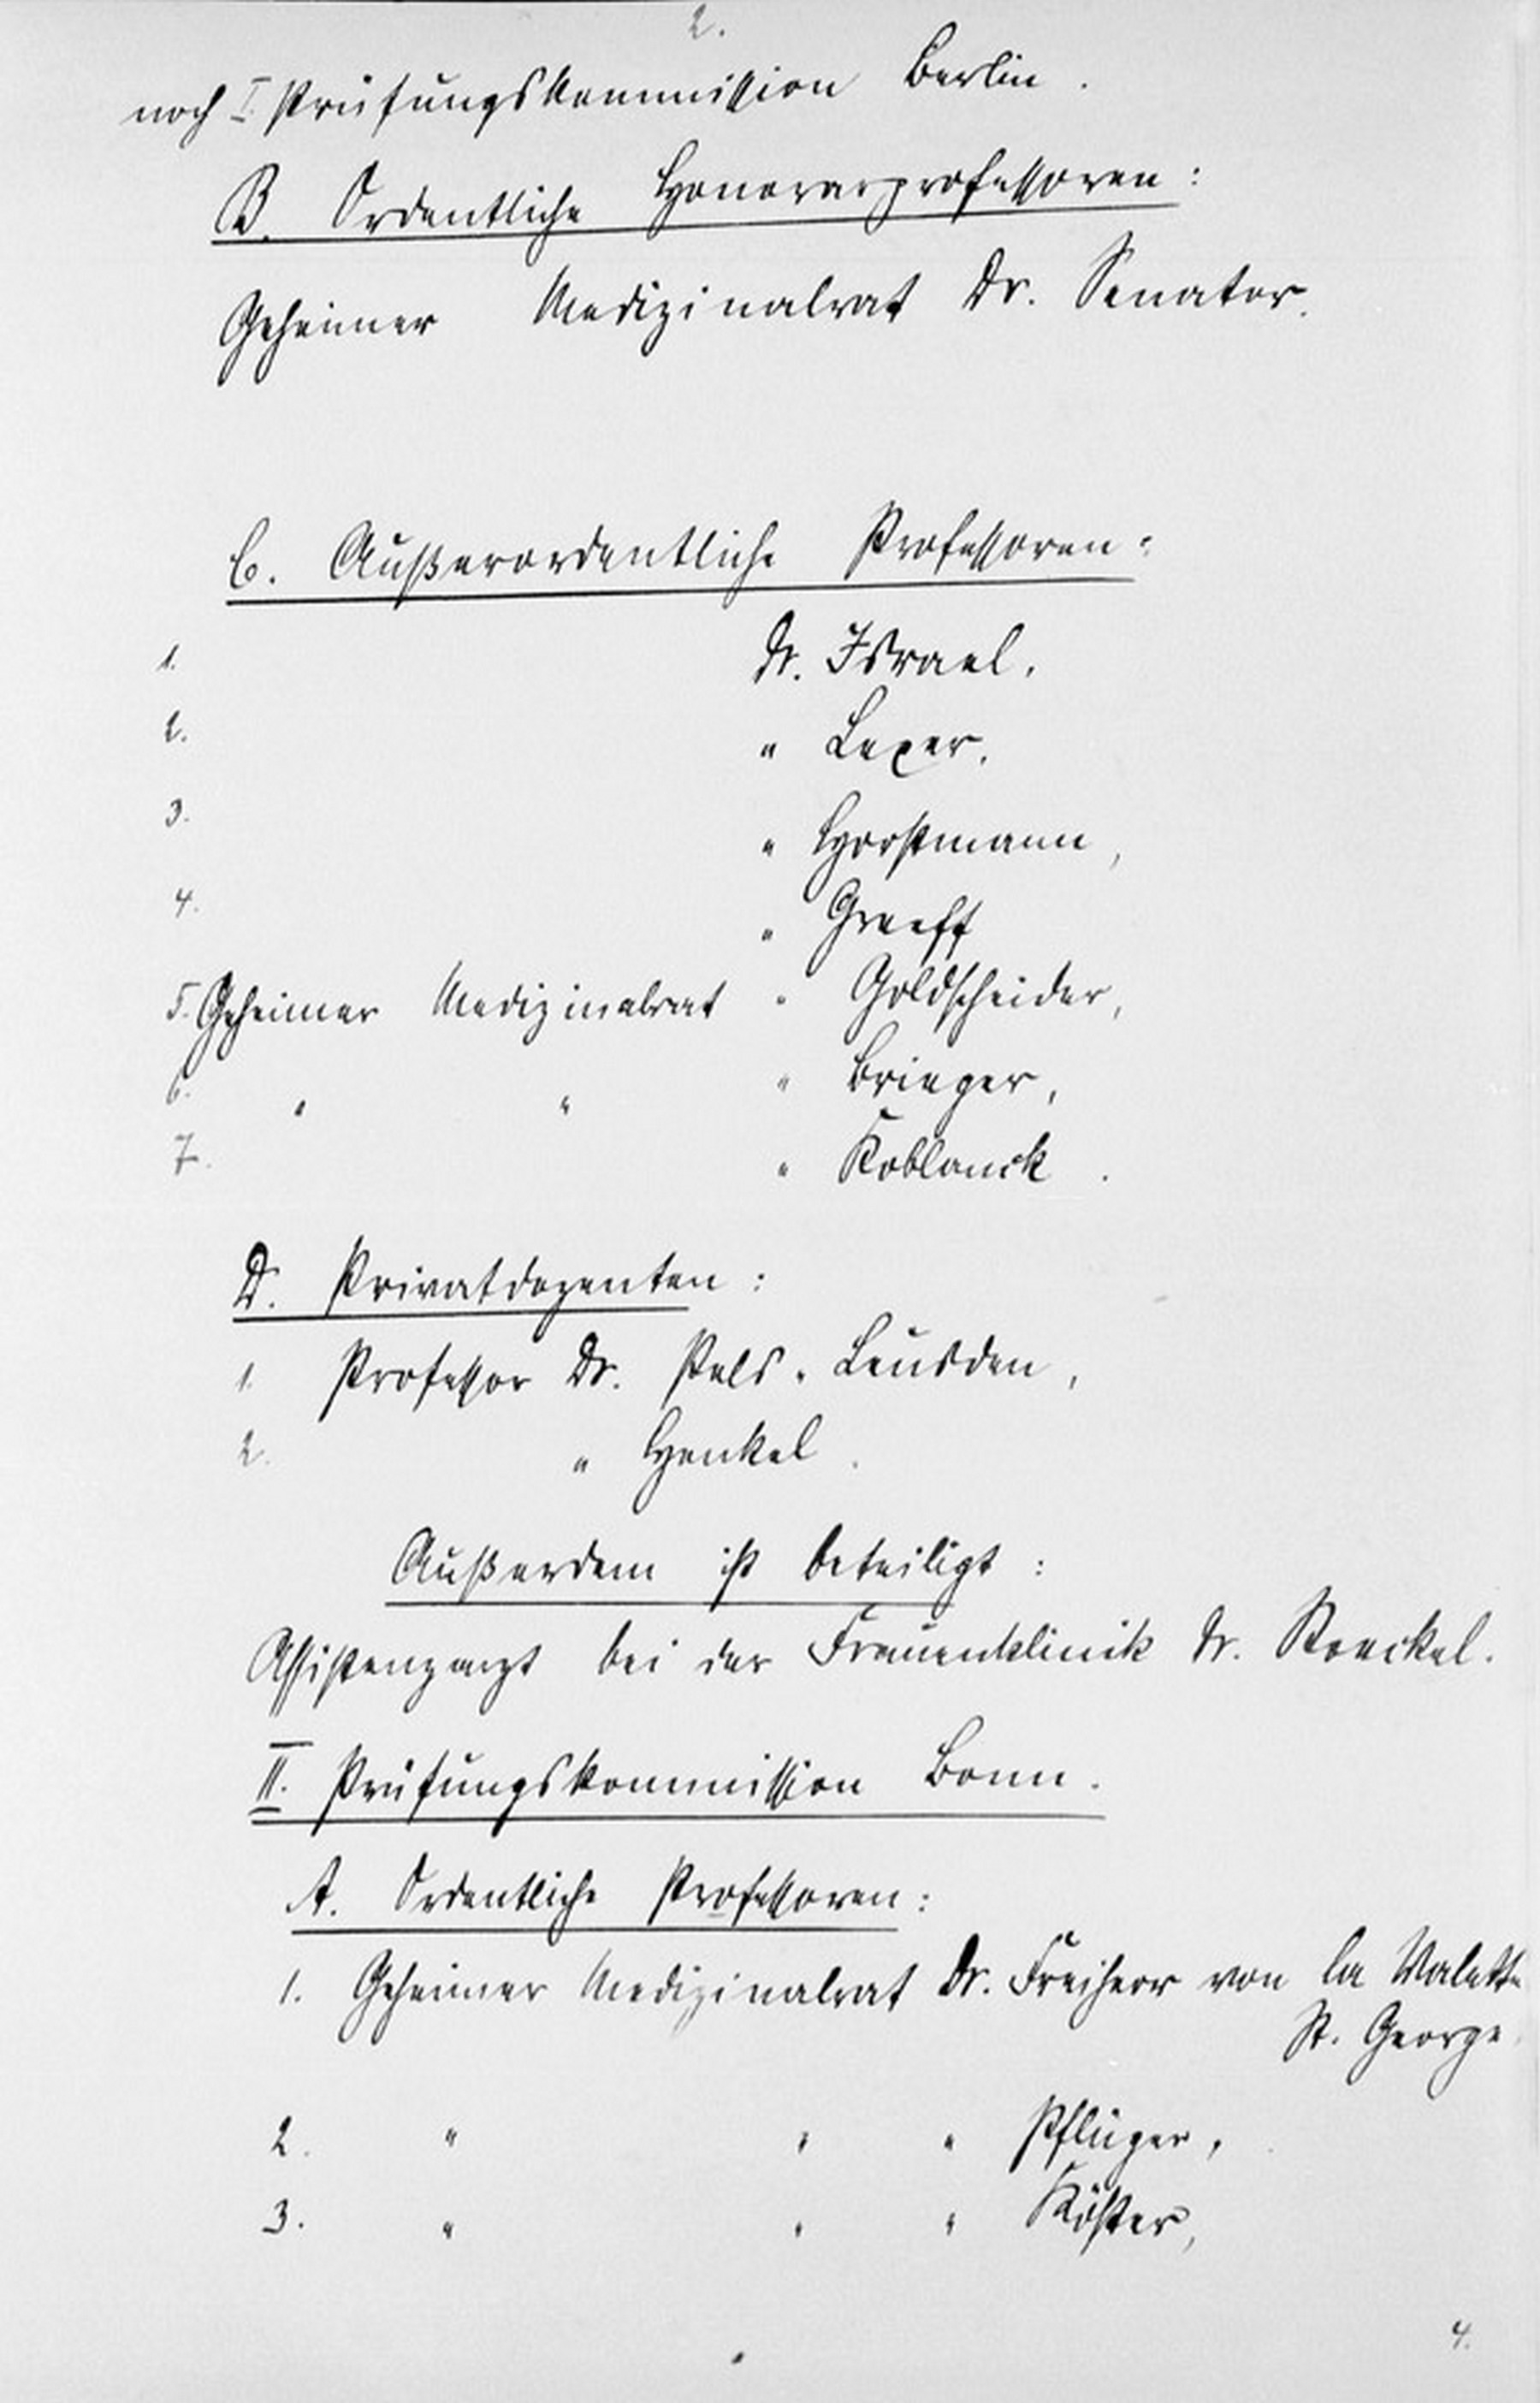 2.
noch I. Prüfungskommission Berlin.
B. Ordentliche Honorarprofessoren:
Geheimer Medizinalrat Dr. Senator.
C. Außerordentliche Professoren:
1. Dr. Israel,
2. " Lexer,
3. " Horstmann,
4. " Greeff
5. Geheimer Medizinalrat " Goldscheider,
6. " " " Brieger,
7. " Koblanck.
D. Privatdozenten:
1. Professor Dr. Pels-Leusden,
2. " Henkel.
Außerdem ist beteiligt:
Assistenzarzt bei der Frauenklinik Dr. Stoeckel.
II. Prüfungskommission Bonn.
A. Ordentliche Professoren:
1. Geheimer Medizinalrat Dr. Freiherr von la Valette
St. George
2. " " " Pflüger,
3. " " " Köster,
4.